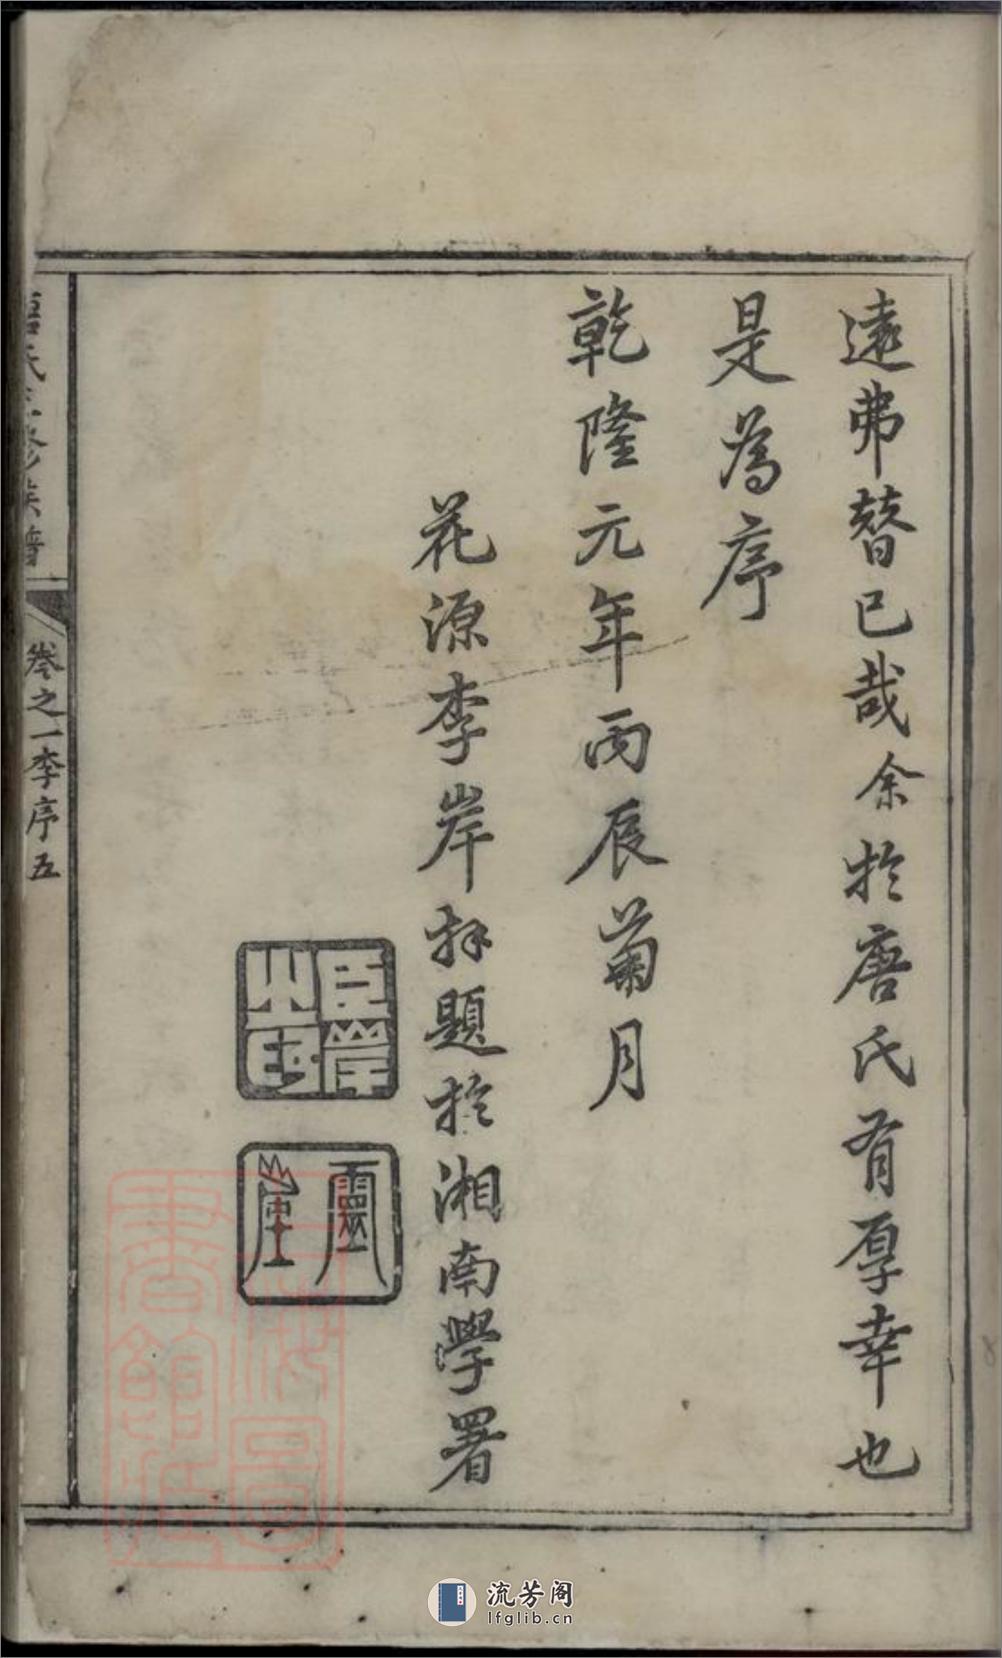 遠弗替已哉余於唐氏有厚幸也
是為序
乾隆元年丙辰菊月
花源李岸拜題於湘南學署
臣岸之印
靈崖
唐氏三修族譜
卷之一李序五
流芳阁
lfglib.cn